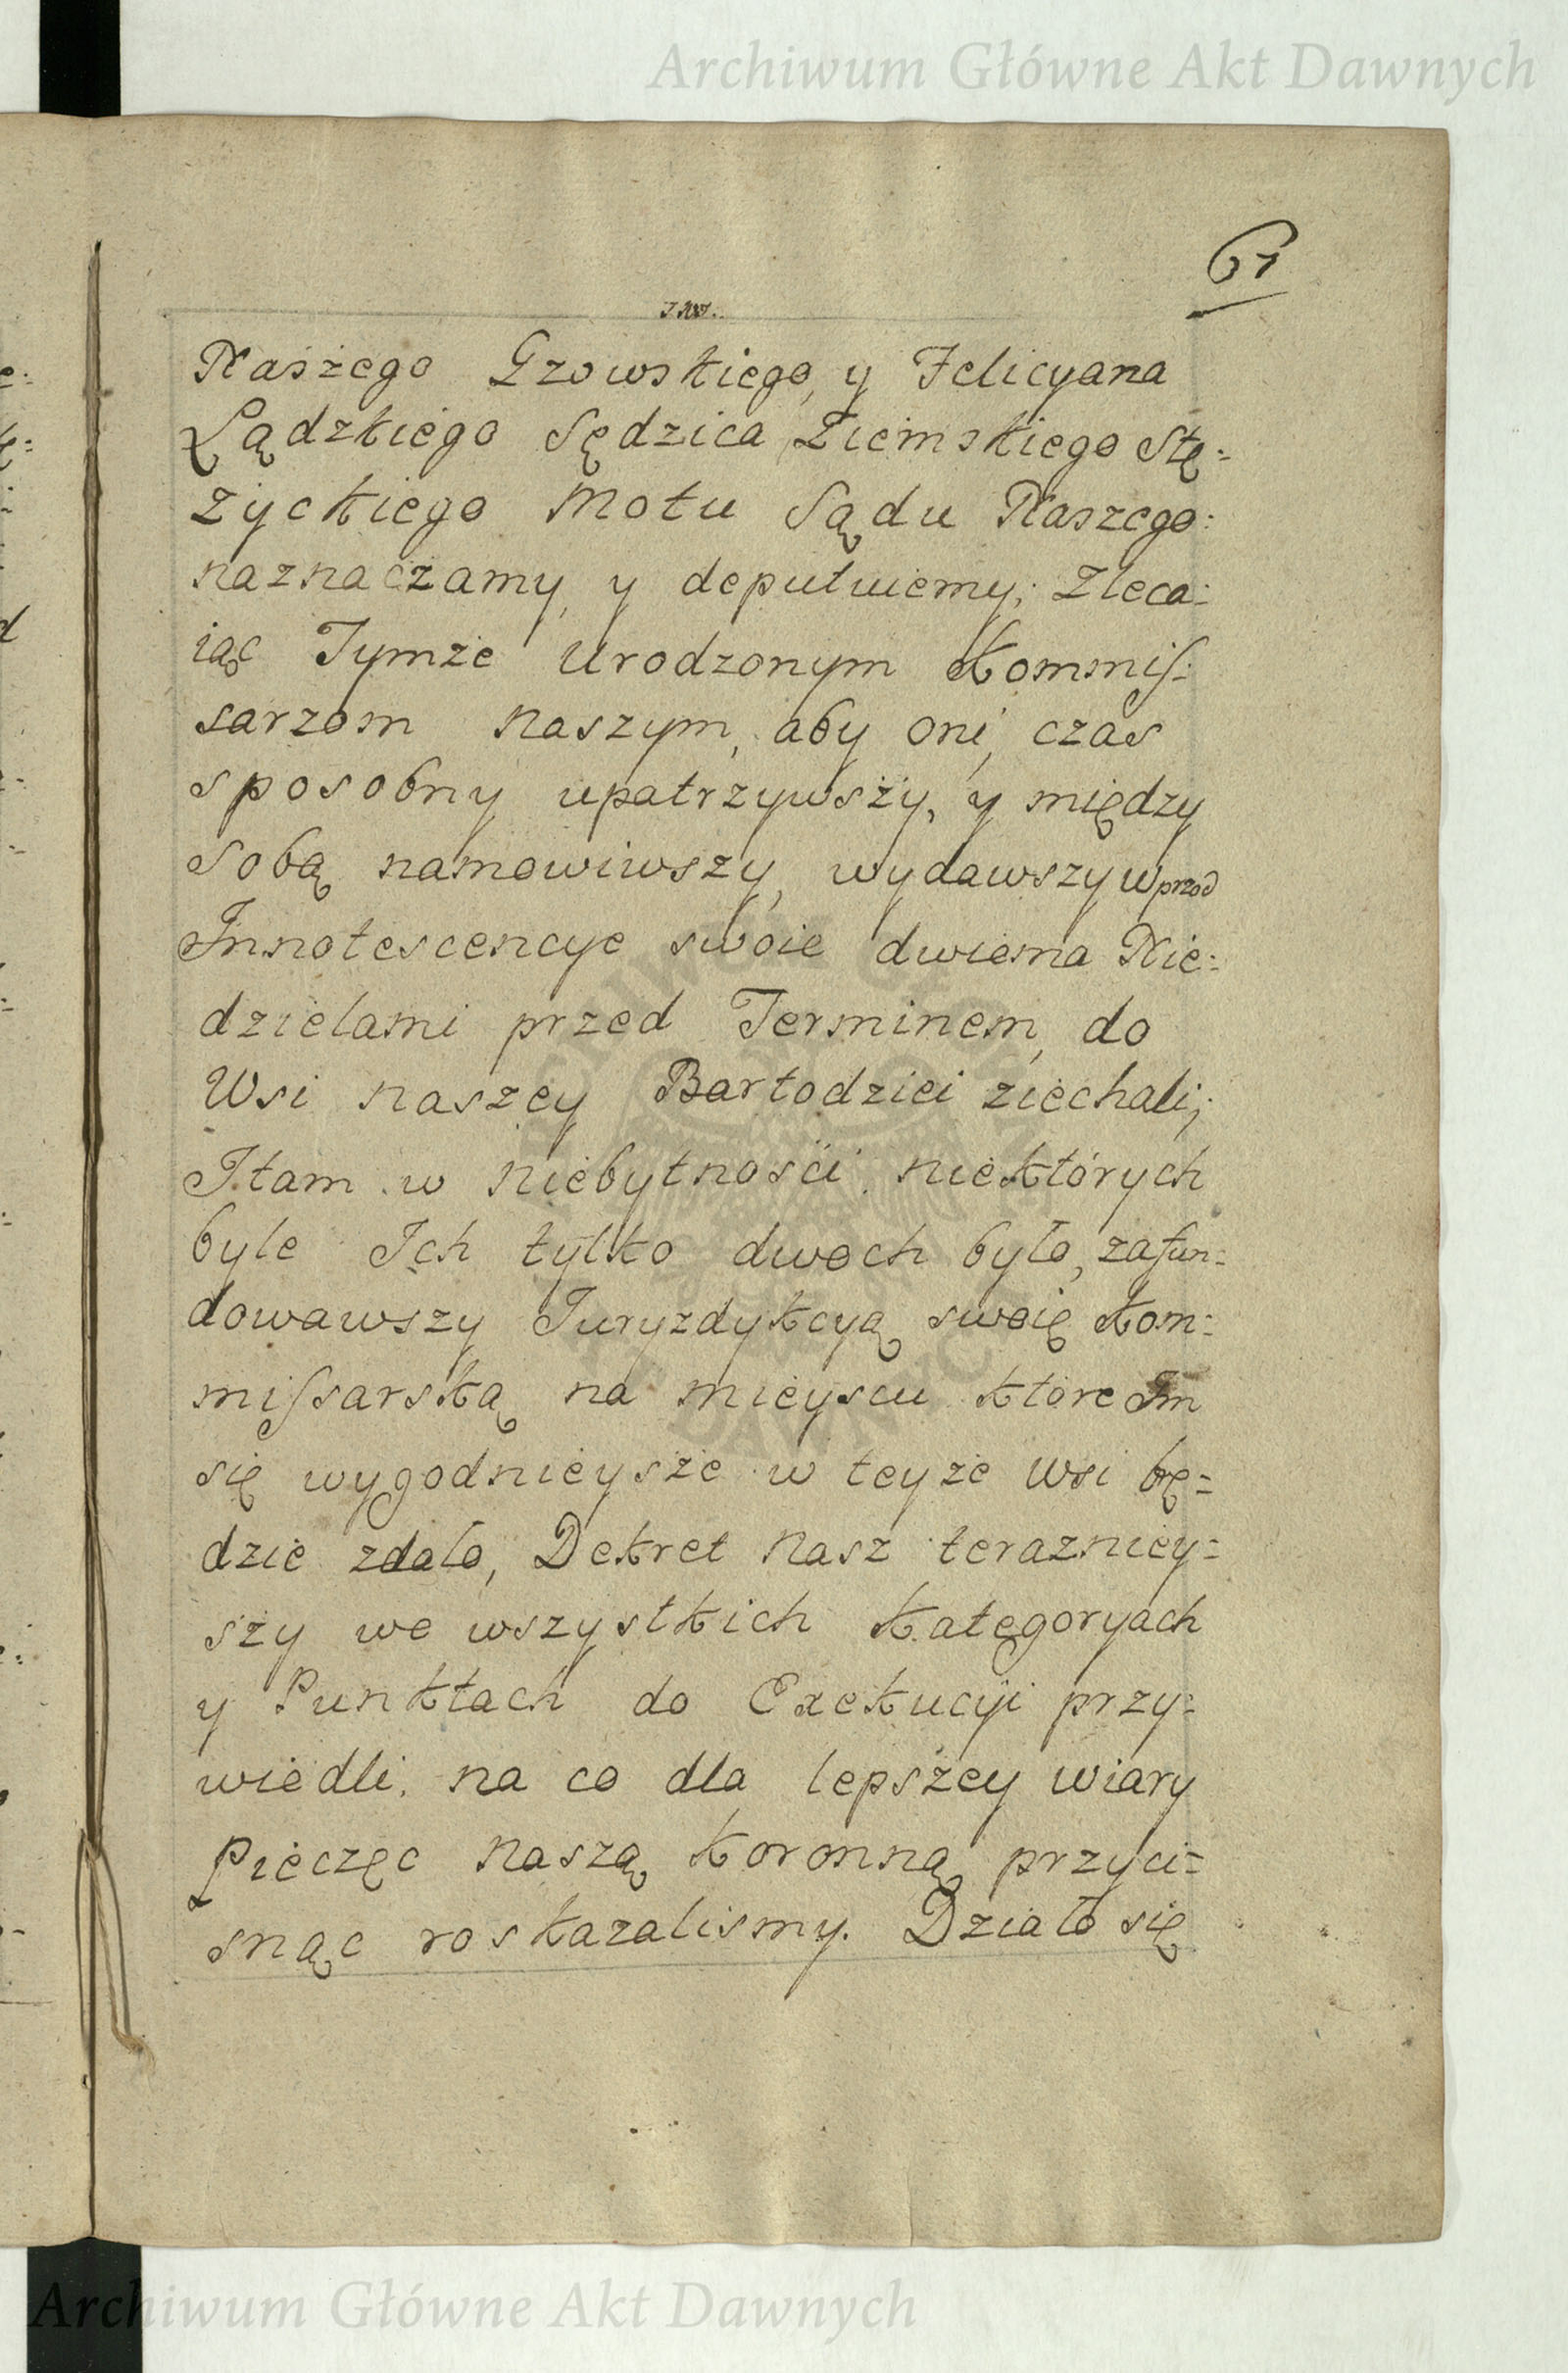 Archiwum Główne Akt Dawnych
61
Naszego Gzowskiego, y Felicyana
Lądzkiego Sędzica Ziemskiego Stę:
życkiego Motu Sądu Naszego:
naznaczamy, y deputuiemy; Zleca:
iąc Tymże Urodzonym Kommis:
sarzom naszym, aby oni, czas
sposobny upatrzywszy, y między
Sobą namowiwszy, wydawszy wprzod
Innotescencye swoie dwiema Nie:
dzielami przed Terminem, do
Wsi naszey Bartodziei ziechali;
I tam w niebytności niektórych
byle Ich tylko dwoch było, zafun:
dowawszy Juryzdykcyą swoię Kom:
missarską na mieyscu które Im
się wygodnieysze w teyże Wsi bę=
dzie zdało, Dekret Nasz terazniey=
szy we wszystkich Kategoryach
y Punktach do Exekucyi przy:
wiedli, na co dla lepszey wiary
Pieczęc Naszą Koronną przyci=
snąc roskazalismy. Działo się
Archiwum Główne Akt Dawnych